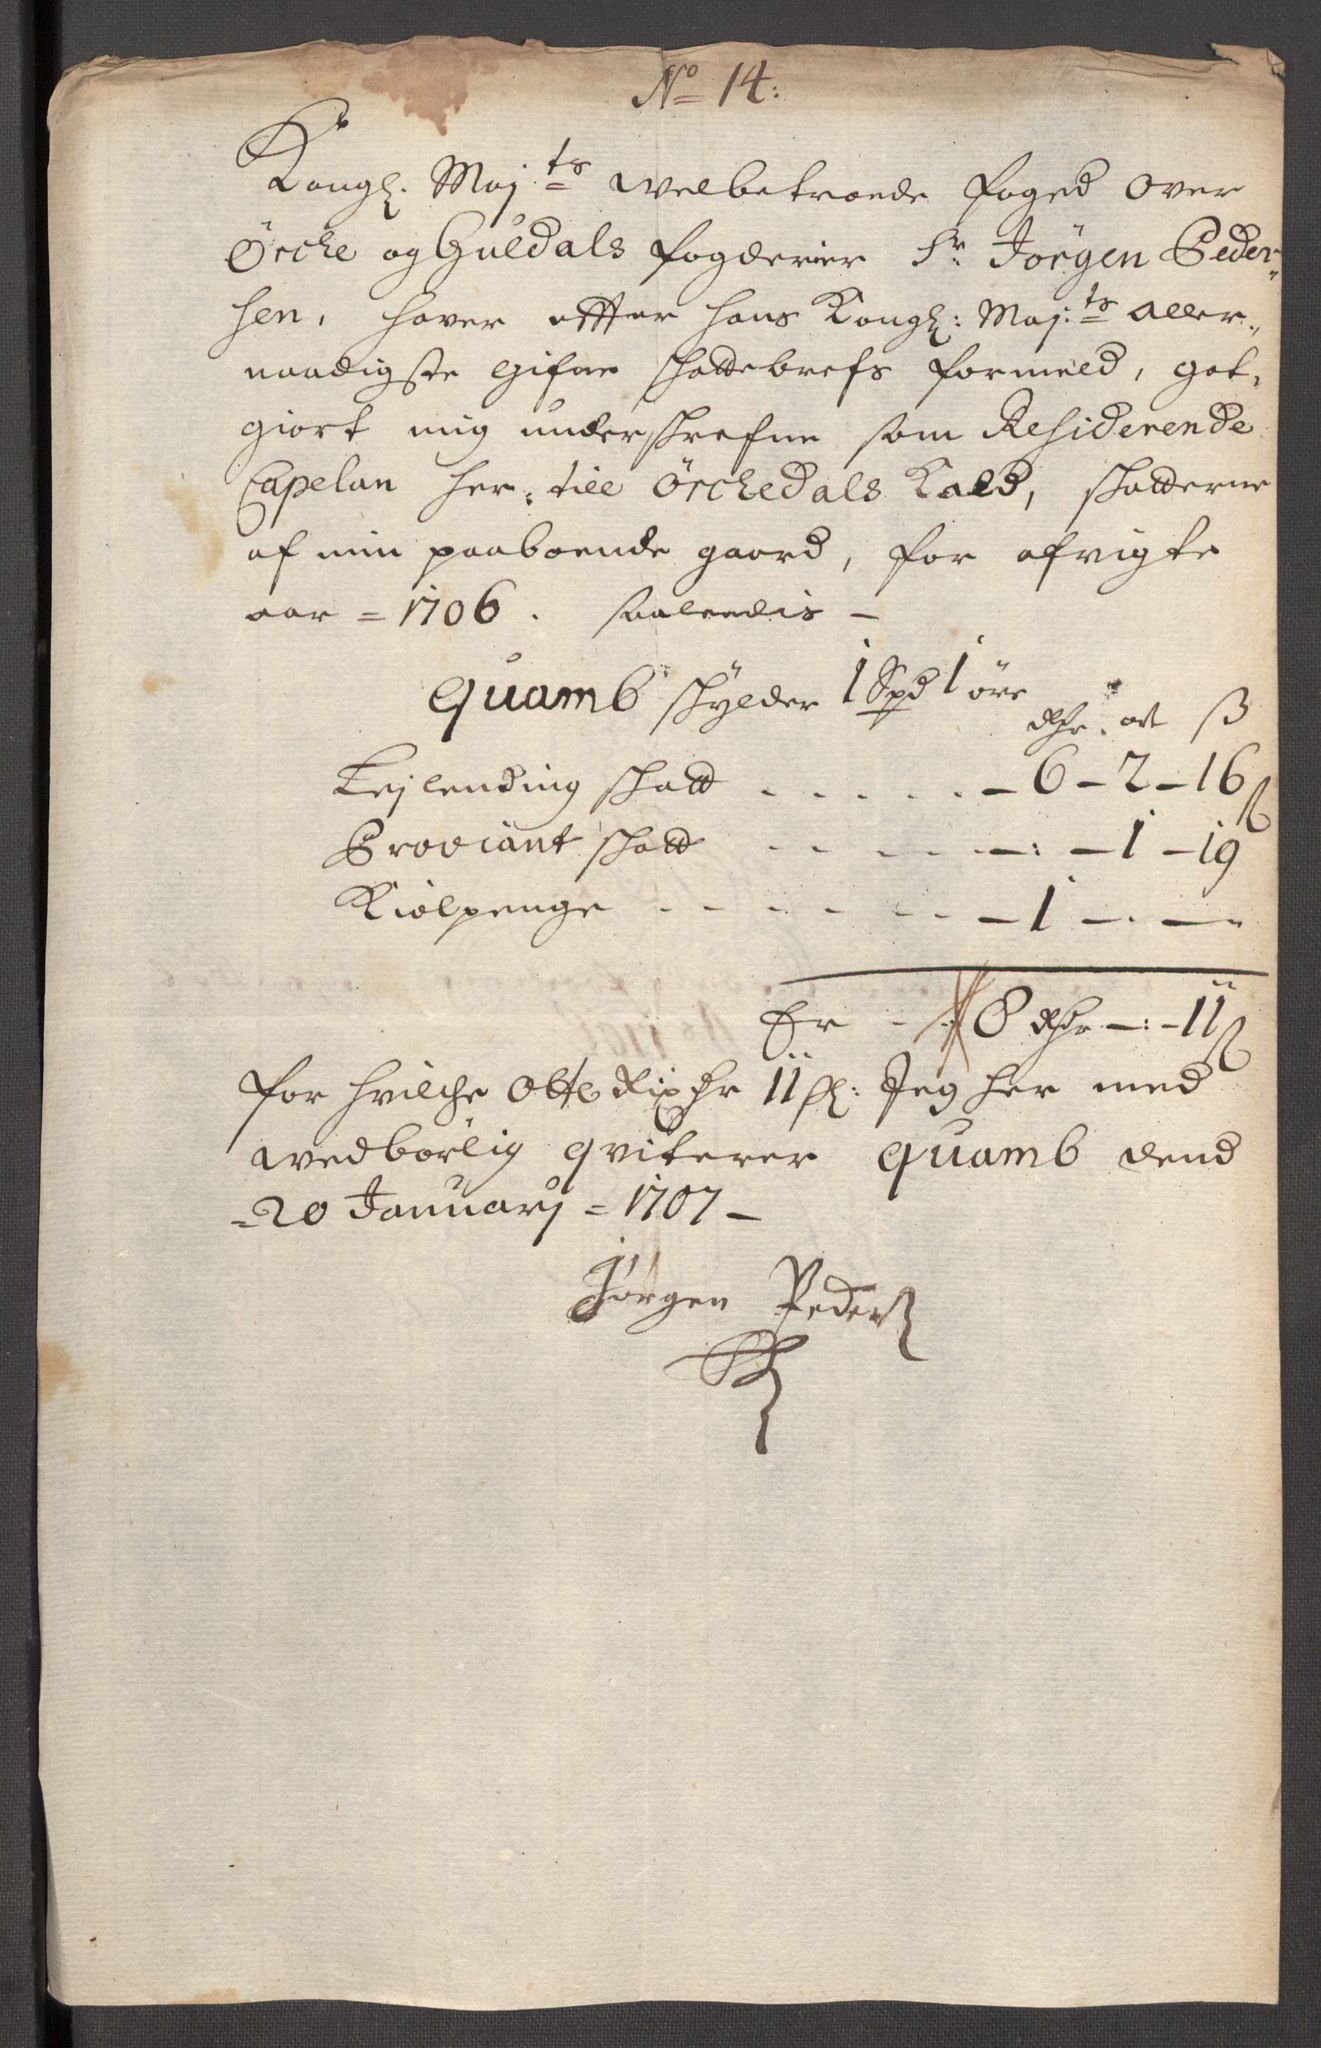 No 14:
Kongl. Maj:ts welbetroede foged over
Örche og Guldals fogderier Sr. Jörgen Peder-
sen, haver efter hans Kongl: Maj:ts Aller-
naadigste Gifne skattebrefs formeld, got-
giort mig underskrefne som Residerende
Capelan her till Örchedals Kald, skatterne
af min paaboende gaard, for afvigte
aar = 1706. saaleedis –
Quamb skylder 1 Spd 1 öre
Rdr. ort ß
Lejlending skatt . . . . . – 6 – 2 – 16 ß
Proviant skatt . . . . – : – 1 – 19
Kiølpenge . . . . . . – 1 – . –
Er . . 8 Rdr – : – 11 ß
for hvilche Otte Rixdr 11 sk: Jeg her med
wedbörlig qviterer Quamb dend
20 Januarj = 1707 –
Jörgen Peders